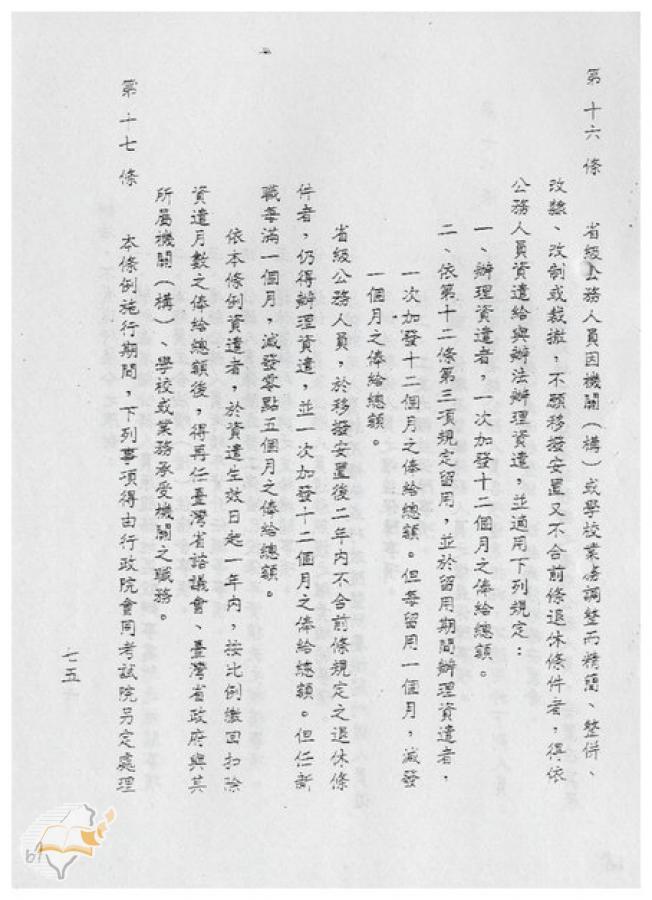 第十六條　省級公務人員因機關（構）或學校業務調整而精簡、整併、
改隸、改制或裁撤，不願移撥安置又不合前條退休條件者，得依
公務人員資遣給與辦法辦理資遣，並適用下列規定：
一、辦理資遣者，一次加發十二個月之俸給總額。
二、依第十二條第三項規定留用，並於留用期間辦理資遣者，
一次加發十二個月之俸給總額。但每留用一個月，減發
一個月之俸給總額。
省級公務人員，於移撥安置後二年內不合前條規定之退休條
件者，仍得辦理資遣，並一次加發十二個月之俸給總額。但任新
職每滿一個月，減發零點五個月之俸給總額。
依本條例資遣者，於資遣生效日起一年內，按比例繳回扣除
資遣月數之俸給總額後，得再任臺灣省諮議會、臺灣省政府與其
所屬機關（構）、學校或業務承受機關之職務。
第十七條　本條例施行期間，下列事項得由行政院會同考試院另定處理
七五